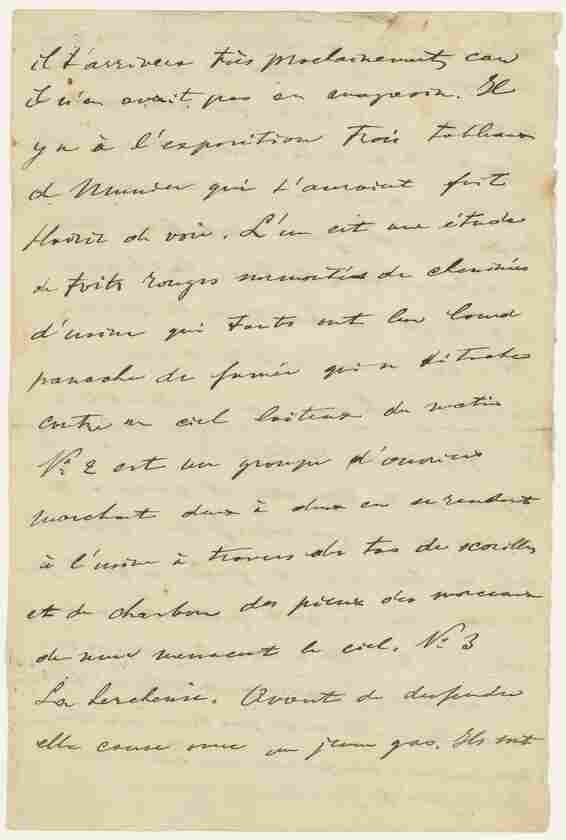 il t'arrivera très prochainement, car
il n'en avait pas en magasin. Il
y a à l'exposition trois tableaux
de Meunier qui t'auraient fait
plaisir de voir. L'un est une étude
de toits rouges surmontés de cheminées
d'usine qui toutes ont leur lourd
panache de fumée qui se détache
contre un ciel laiteux du matin
No 2 est un groupe d'ouvriers
marchant deux à deux en se rendant
à l'usine à travers des tas de scorilles
et de charbon des pieux des morceaux
de murs menacent le ciel. No 3
La hercheuse. Avant de descendre
elle cause avec un jeune gas. Ils ont